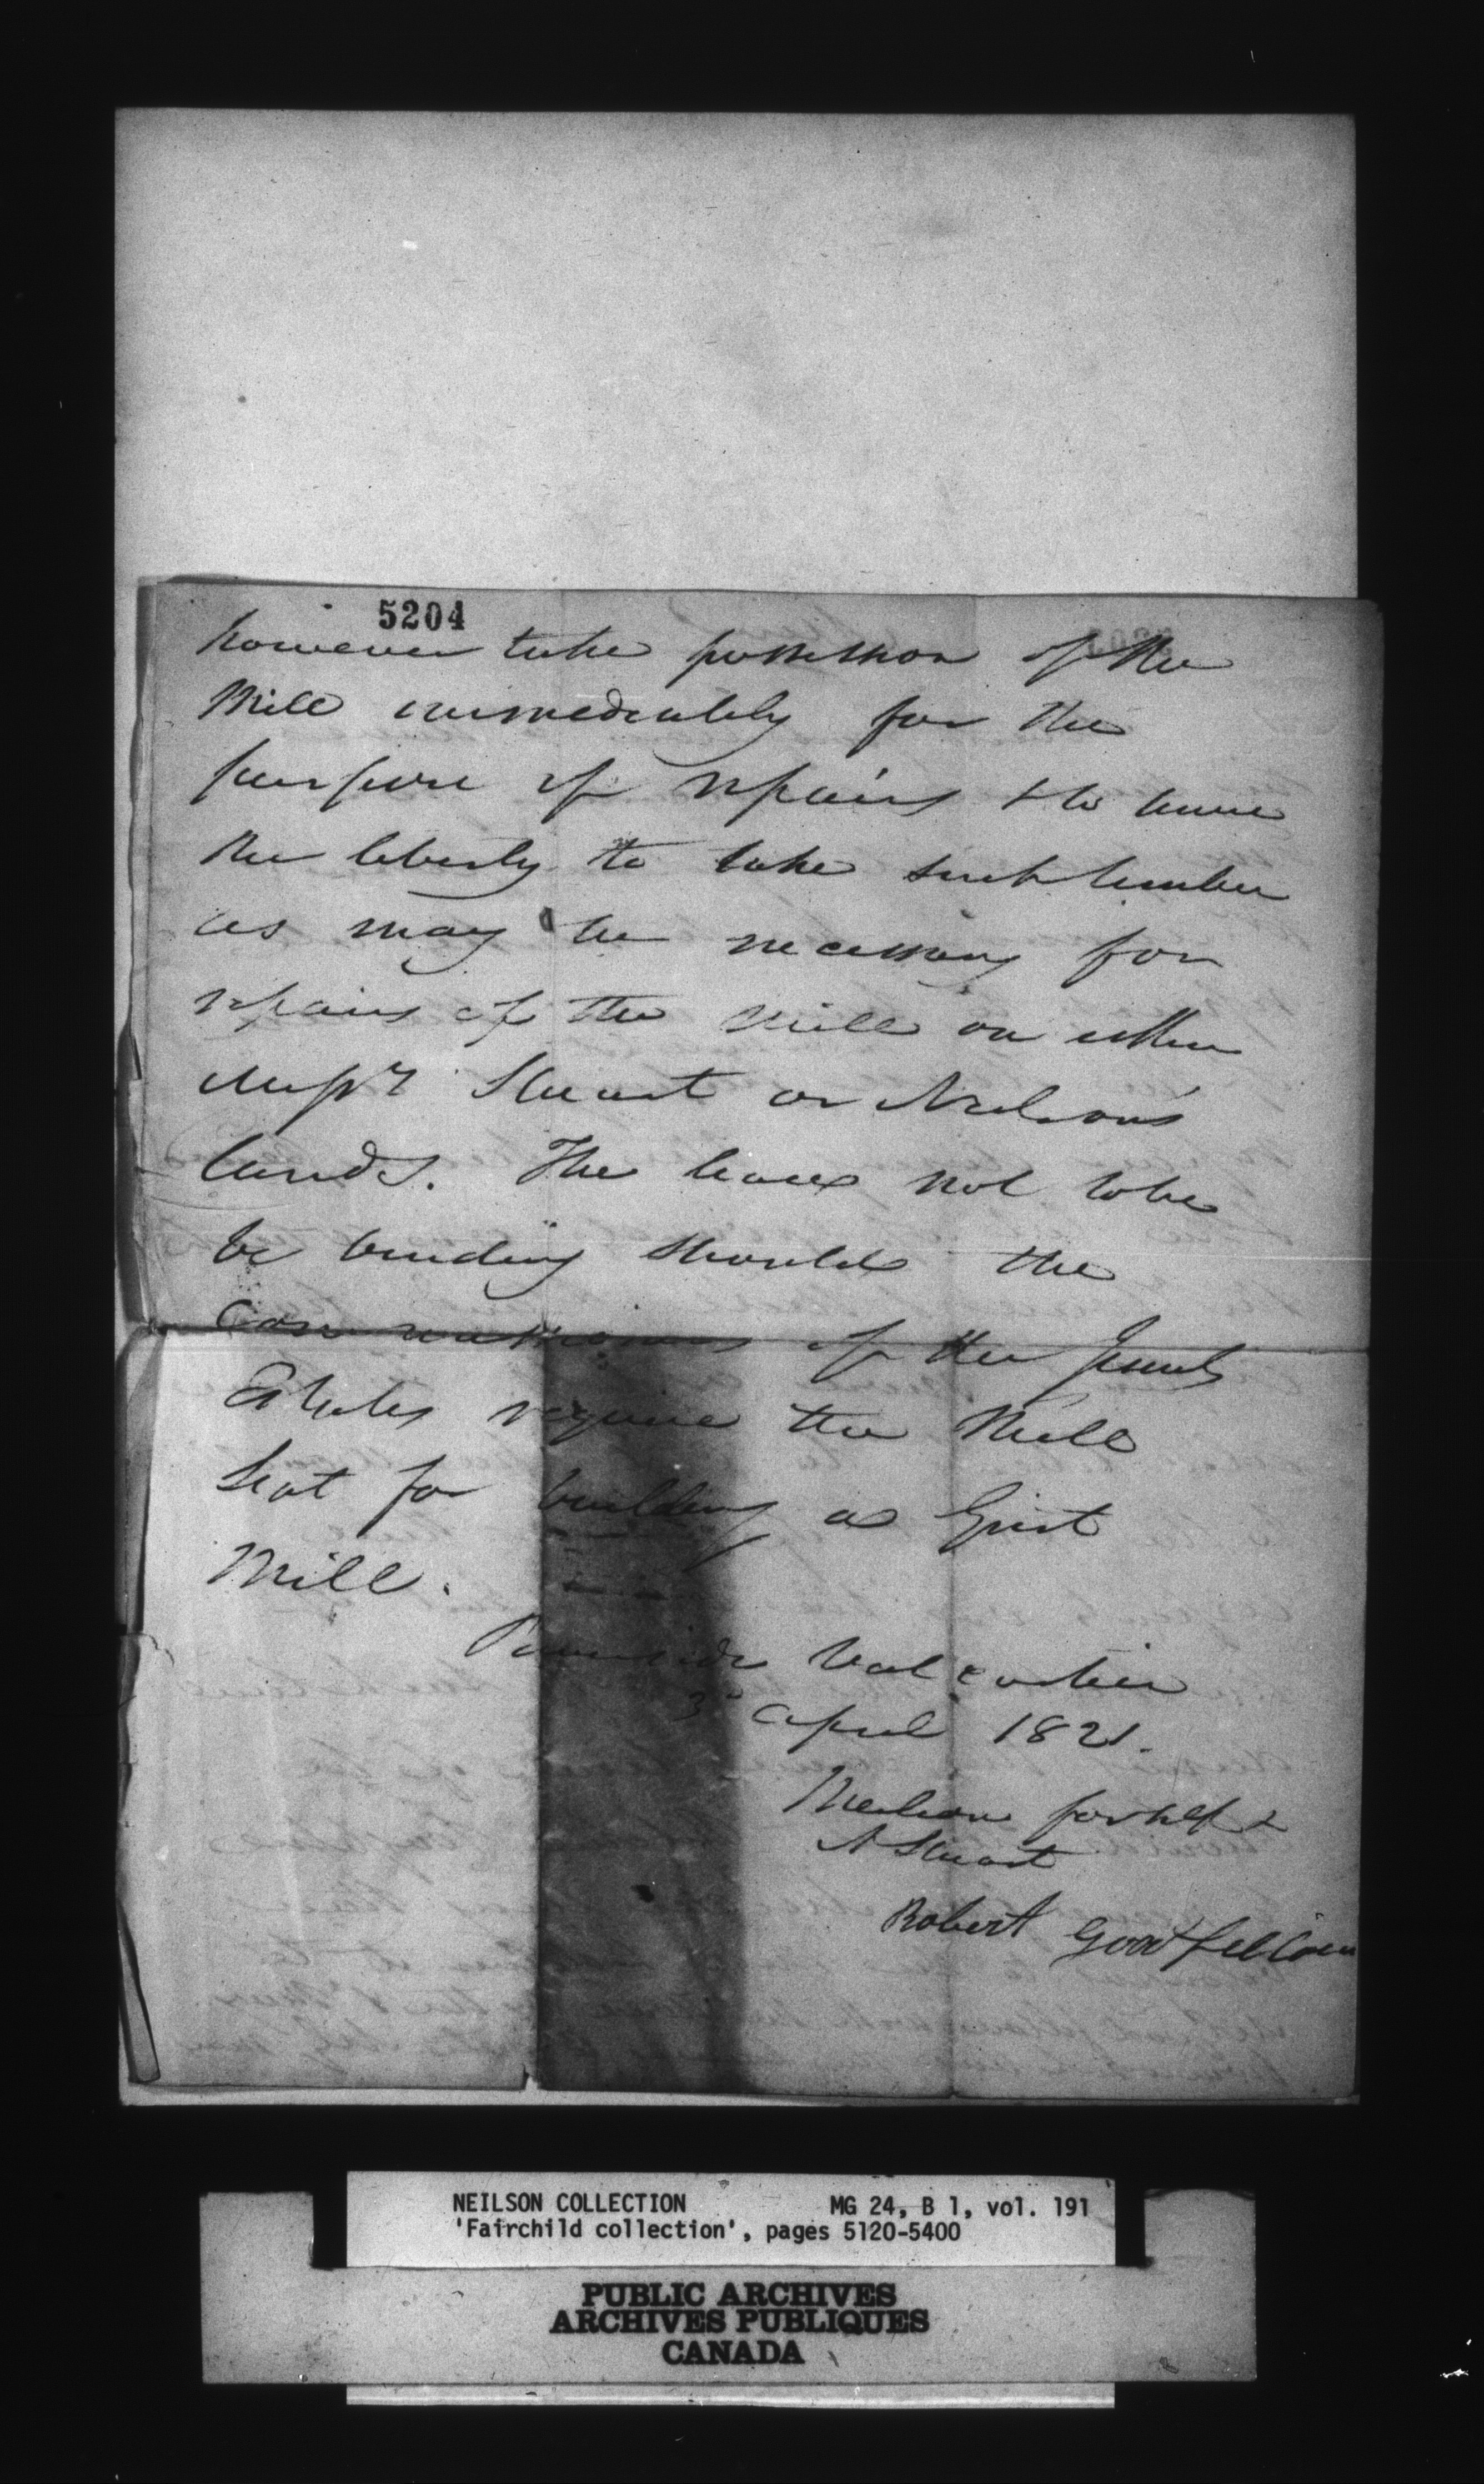 5204
however take possession of the
Mill immediately for the
purpose of repairs & to have
the liberty to take such timber
as may be necessary for
repairs of the Mill on either
Messrs Stuart or Neilson's
lands. The lease not to be
be binding should the
Commissioners of the Jesuits
Estates require the Mill
Seat for building a Grist
Mill.
Valcartier
3d April 1821.
Neilson for self &
A Stuart
Robert Goodfellow
NEILSON COLLECTION MG 24, B 1, vol. 191
'Fairchild collection', pages 5120-5400
PUBLIC ARCHIVES
ARCHIVES PUBLIQUES
CANADA